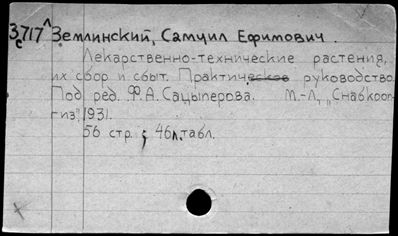 З717^л Землинский, Самуил Ефимович.
с
Лекарственно-технические растения,
их сбор и сбыт. Практическое руководство
Под ред. Ф.А. Сацыперова. М.-Л, „Снабкооп
гиз", 1931.
56 стр.; 46 л. табл.